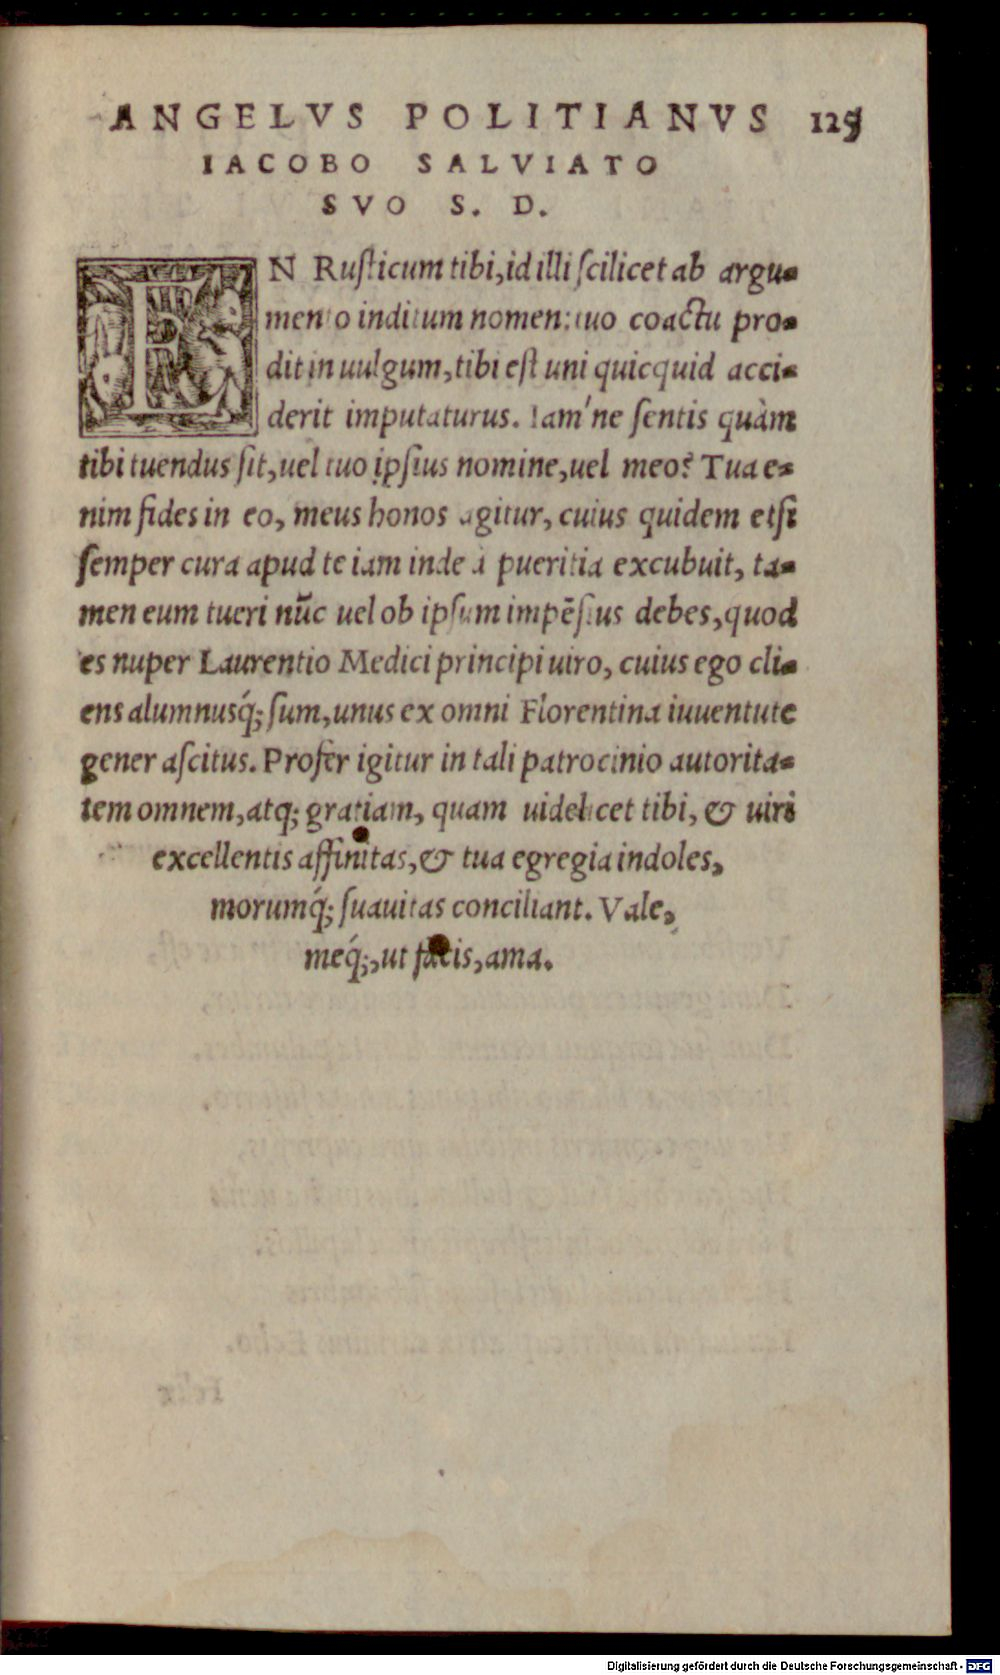 ANGELVS POLITIANVS 125
IACOBO SALVIATO
SVO S. D.
EN Rusticum tibi, id illi scilicet ab argu-
mento inditum nomen: tuo coactu pro-
dit in uulgum, tibi est uni quicquid acci-
derit imputaturus. Iam'ne sentis quàm
tibi tuendus sit, uel tuo ipsius nomine, uel meo? Tua e-
nim fides in eo, meus honos agitur, cuius quidem etsi
semper cura apud te iam inde à pueritia excubuit, ta-
men eum tueri nūc uel ob ipsum impēsius debes, quod
es nuper Laurentio Medici principi uiro, cuius ego cli-
ens alumnusq́; sum, unus ex omni Florentina iuuentute
gener ascitus. Profer igitur in tali patrocinio autorita-
tem omnem, atq; gratiam, quam uidelicet tibi, & uiri
excellentis affinitas, & tua egregia indoles,
morumq́; suauitas conciliant. Vale,
meq́;, ut facis, ama.
Digitalisierung gefördert durch die Deutsche Forschungsgemeinschaft - DFG